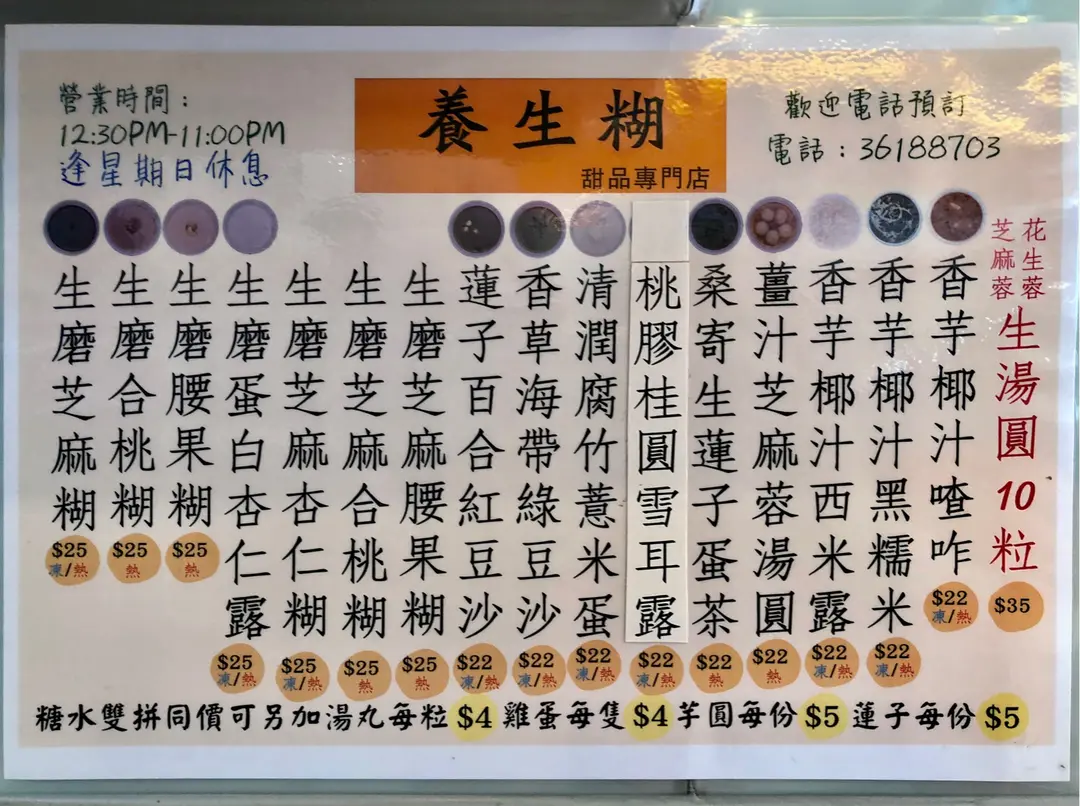 營業時間：
12:30PM-11:00PM
逢星期日休息
養生糊
甜品專門店
歡迎電話預訂
電話：36188703
花生蓉
芝麻蓉
生湯圓10粒
$35
香芋椰汁喳咋
$22
凍/熱
香芋椰汁黑糯米
$22
凍/熱
香芋椰汁西米露
$22
凍/熱
薑汁芝麻蓉湯圓
$22
熱
桑寄生蓮子蛋茶
$22
熱
桃膠桂圓雪耳露
$22
凍/熱
清潤腐竹薏米蛋
$22
凍/熱
香草海帶綠豆沙
$22
凍/熱
蓮子百合紅豆沙
$22
凍/熱
生磨芝麻腰果糊
$25
熱
生磨芝麻合桃糊
$25
熱
生磨芝麻杏仁糊
$25
凍/熱
生磨蛋白杏仁露
$25
凍/熱
生磨腰果糊
$25
熱
生磨合桃糊
$25
熱
生磨芝麻糊
$25
凍/熱
糖水雙拼同價可另加湯丸每粒$4 雞蛋每隻$4 芋圓每份$5 蓮子每份$5